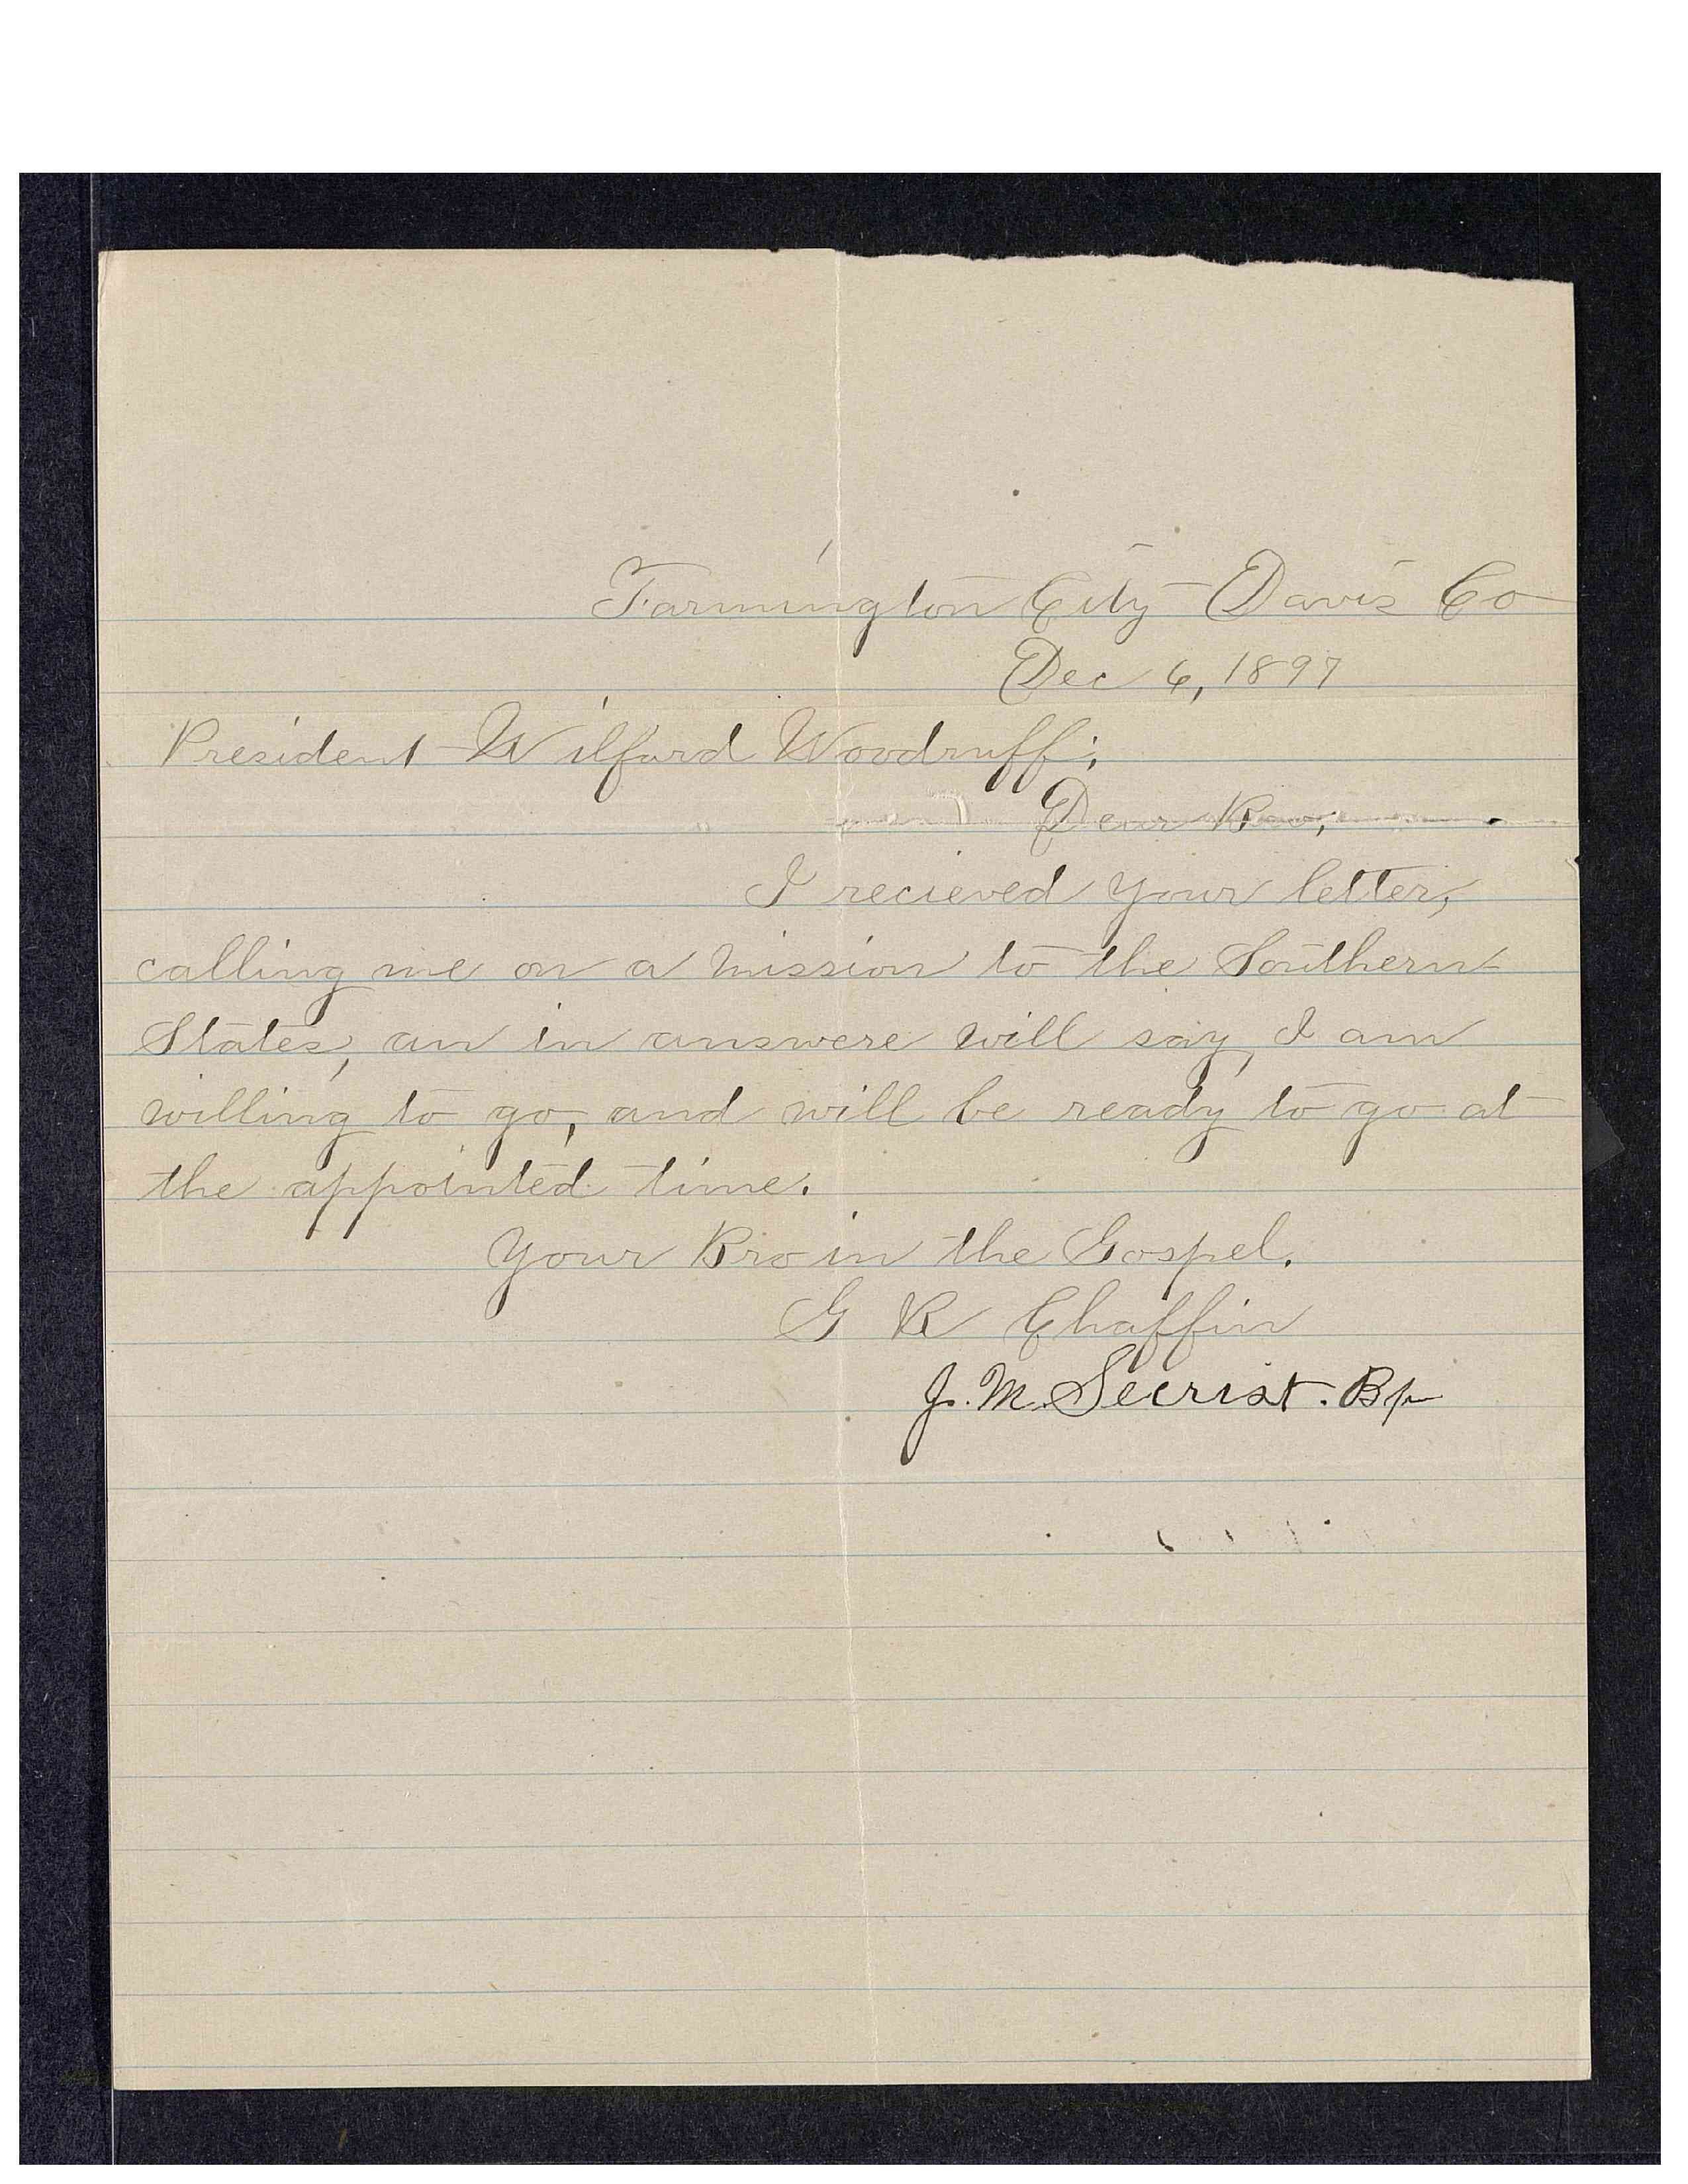 Farmington City Davis Co
Dec 6, 1897
President Wilford Woodruff;
Dear Bro;
I recieved your letter,
calling me on a mission to the Southern
States, an in answere will say, I am
willing to go, and will be ready to go at
the appointed time.
Your Bro in the Gospel.
G R Chaffin
J. M. Secrist. Bp